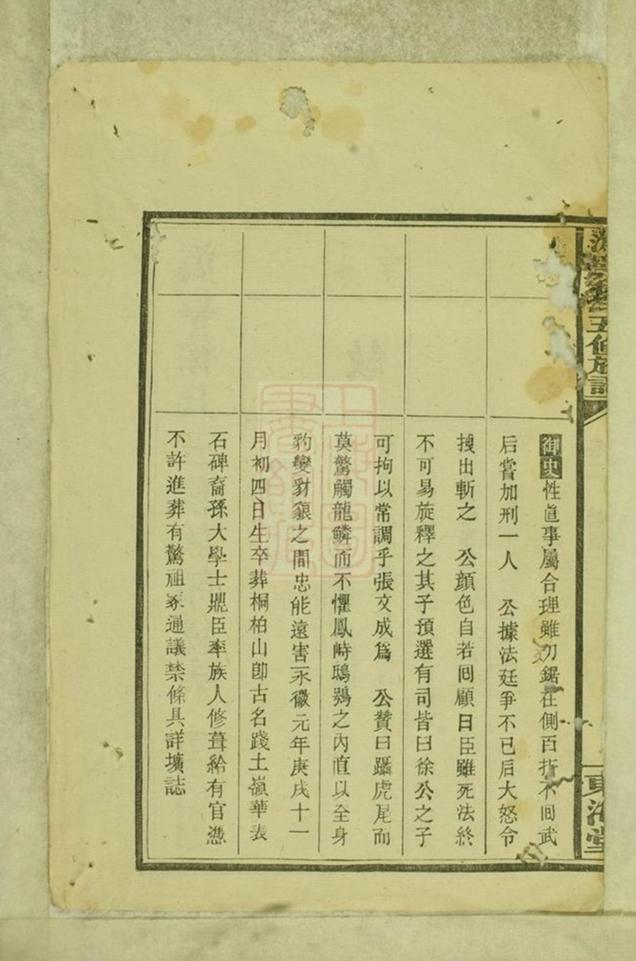 五修族譜
東海堂
御史性眞事屬合理雖刀鋸在側百折不囘武
后嘗加刑一人 公據法廷爭不已后大怒令
拽出斬之 公顔色自若囘顧曰臣雖死法終
不可易旋釋之其子預選有司皆曰徐公之子
可拘以常調乎張文成爲 公贊曰躡虎尾而
莫驚觸龍鱗而不懼鳳峙鴟鴞之內直以全身
豹變豺狼之間忠能遠害永徽元年庚戌十一
月初四日生卒葬桐柏山卽古名踐土嶺華表
石碑裔孫大學士鼎臣率族人修葺給有官憑
不許進葬有驚祖冢通議禁條具詳壙誌